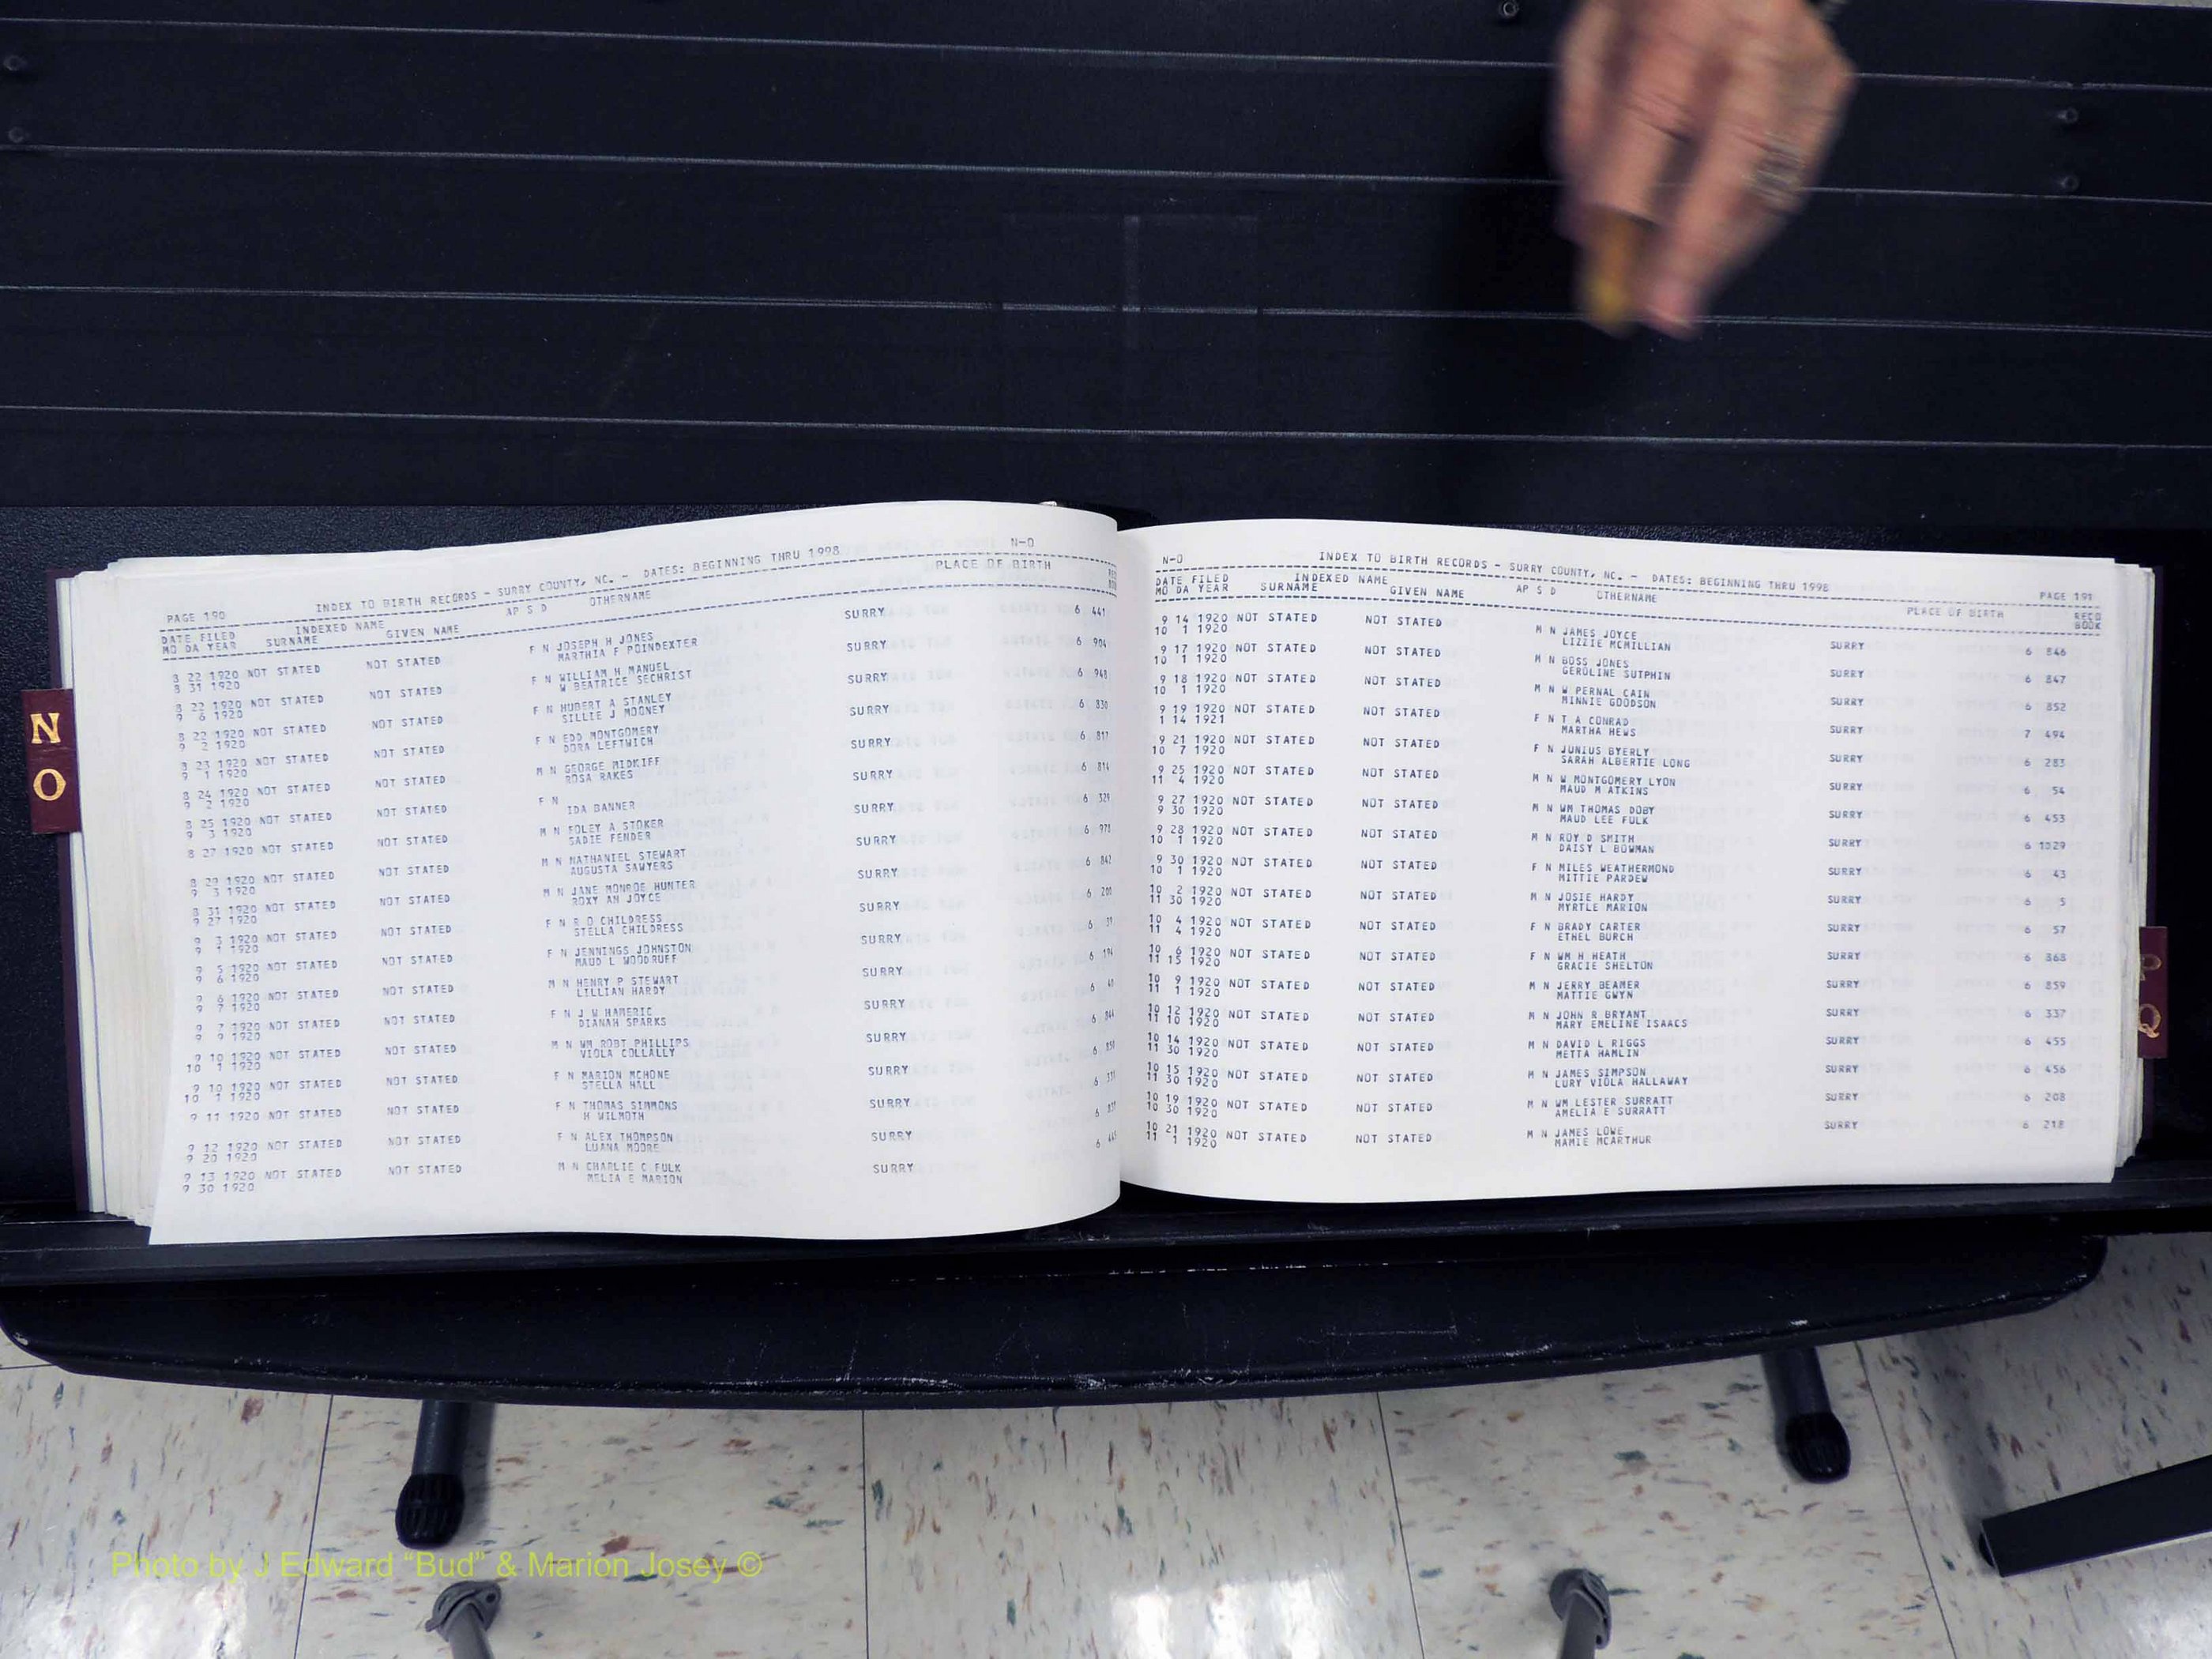 PAGE 190 INDEX TO BIRTH RECORDS - SURRY COUNTY, NC. - DATES: BEGINNING THRU 1998 N-O
DATE FILED INDEXED NAME AP S D OTHERNAME PLACE OF BIRTH
MO DA YEAR SURNAME GIVEN NAME
8 22 1920 NOT STATED NOT STATED F N JOSEPH H JONES SURRY 6 441
8 31 1920 MARTHIA F POINDEXTER
8 22 1920 NOT STATED NOT STATED F N WILLIAM H MANUEL SURRY 6 904
9 6 1920 W BEATRICE SECHRIST
8 22 1920 NOT STATED NOT STATED F N HUBERT A STANLEY SURRY 6 948
9 2 1920 SILLIE J MOONEY
8 23 1920 NOT STATED NOT STATED F N EDD MONTGOMERY SURRY 6 830
9 1 1920 DORA LEFTWICH
8 24 1920 NOT STATED NOT STATED M N GEORGE MIDKIFF SURRY 6 817
9 2 1920 ROSA RAKES
8 25 1920 NOT STATED NOT STATED F N SURRY 6 814
9 3 1920 IDA BANNER
8 27 1920 NOT STATED NOT STATED M N FOLEY A STOKER SURRY 6 329
SADIE FENDER
8 29 1920 NOT STATED NOT STATED M N NATHANIEL STEWART SURRY 6
9 3 1920 AUGUSTA SAWYERS
8 31 1920 NOT STATED NOT STATED M N JANE MONROE HUNTER SURRY 6 842
9 27 1920 ROXY AN JOYCE
9 3 1920 NOT STATED NOT STATED F N R O CHILDRESS SURRY 6
9 1 1920 STELLA CHILDRESS
9 5 1920 NOT STATED NOT STATED F N JENNINGS JOHNSTON SURRY 6
9 6 1920 MAUD L WOODRUFF
9 6 1920 NOT STATED NOT STATED M N HENRY P STEWART SURRY 6 194
9 7 1920 LILLIAN HARDY
9 7 1920 NOT STATED NOT STATED F N J W HAMERIC SURRY 6
9 9 1920 DIANAH SPARKS
9 10 1920 NOT STATED NOT STATED M N WM ROBT PHILLIPS SURRY 6
10 1 1920 VIOLA COLLALLY
9 10 1920 NOT STATED NOT STATED F N MARION MCHONE SURRY 6
10 1 1920 STELLA HALL
9 11 1920 NOT STATED NOT STATED F N THOMAS SIMMONS SURRY 6
H WILMOTH
9 12 1920 NOT STATED NOT STATED F N ALEX THOMPSON SURRY 6
9 20 1920 LUANA MOORE
9 13 1920 NOT STATED NOT STATED M N CHARLIE C FULK SURRY 6
9 30 1920 MELIA E MARION
N-O INDEX TO BIRTH RECORDS - SURRY COUNTY, NC. - DATES: BEGINNING THRU 1998 PAGE 191
DATE FILED INDEXED NAME AP S D OTHERNAME PLACE OF BIRTH RECD
MO DA YEAR SURNAME GIVEN NAME BOOK
9 14 1920 NOT STATED NOT STATED M N JAMES JOYCE SURRY 6 846
10 1 1920 LIZZIE MCMILLIAN
9 17 1920 NOT STATED NOT STATED M N BOSS JONES SURRY 6 847
10 1 1920 GEROLINE SUTPHIN
9 18 1920 NOT STATED NOT STATED M N W PERNAL CAIN SURRY 6 852
10 1 1920 MINNIE GOODSON
9 19 1920 NOT STATED NOT STATED F N T A CONRAD SURRY 7 494
1 14 1921 MARTHA HEWS
9 21 1920 NOT STATED NOT STATED F N JUNIUS BYERLY SURRY 6 283
10 7 1920 SARAH ALBERTIE LONG
9 25 1920 NOT STATED NOT STATED M N W MONTGOMERY LYON SURRY 6 54
11 4 1920 MAUD M ATKINS
9 27 1920 NOT STATED NOT STATED M N WM THOMAS DOBY SURRY 6 453
9 30 1920 MAUD LEE FULK
9 28 1920 NOT STATED NOT STATED M N ROY D SMITH SURRY 6 1029
10 1 1920 DAISY L BOWMAN
9 30 1920 NOT STATED NOT STATED F N MILES WEATHERMOND SURRY 6 43
10 1 1920 MITTIE PARDEW
10 2 1920 NOT STATED NOT STATED M N JOSIE HARDY SURRY 6 5
11 30 1920 MYRTLE MARION
10 4 1920 NOT STATED NOT STATED F N BRADY CARTER SURRY 6 57
11 4 1920 ETHEL BURCH
10 6 1920 NOT STATED NOT STATED F N WM H HEATH SURRY 6 868
11 15 1920 GRACIE SHELTON
10 9 1920 NOT STATED NOT STATED M N JERRY BEAMER SURRY 6 859
11 1 1920 MATTIE GWYN
10 12 1920 NOT STATED NOT STATED M N JOHN R BRYANT SURRY 6 337
11 10 1920 MARY EMELINE ISAACS
10 14 1920 NOT STATED NOT STATED M N DAVID L RIGGS SURRY 6 455
11 30 1920 METTA HAMLIN
10 15 1920 NOT STATED NOT STATED M N JAMES SIMPSON SURRY 6 456
11 30 1920 LURY VIOLA HALLAWAY
10 19 1920 NOT STATED NOT STATED M N WM LESTER SURRATT SURRY 6 208
10 30 1920 AMELIA E SURRATT
10 21 1920 NOT STATED NOT STATED M N JAMES LOWE SURRY 6 218
11 1 1920 MAMIE MCARTHUR
N
O
Q
Photo by J Edward “Bud” & Marion Josey ©